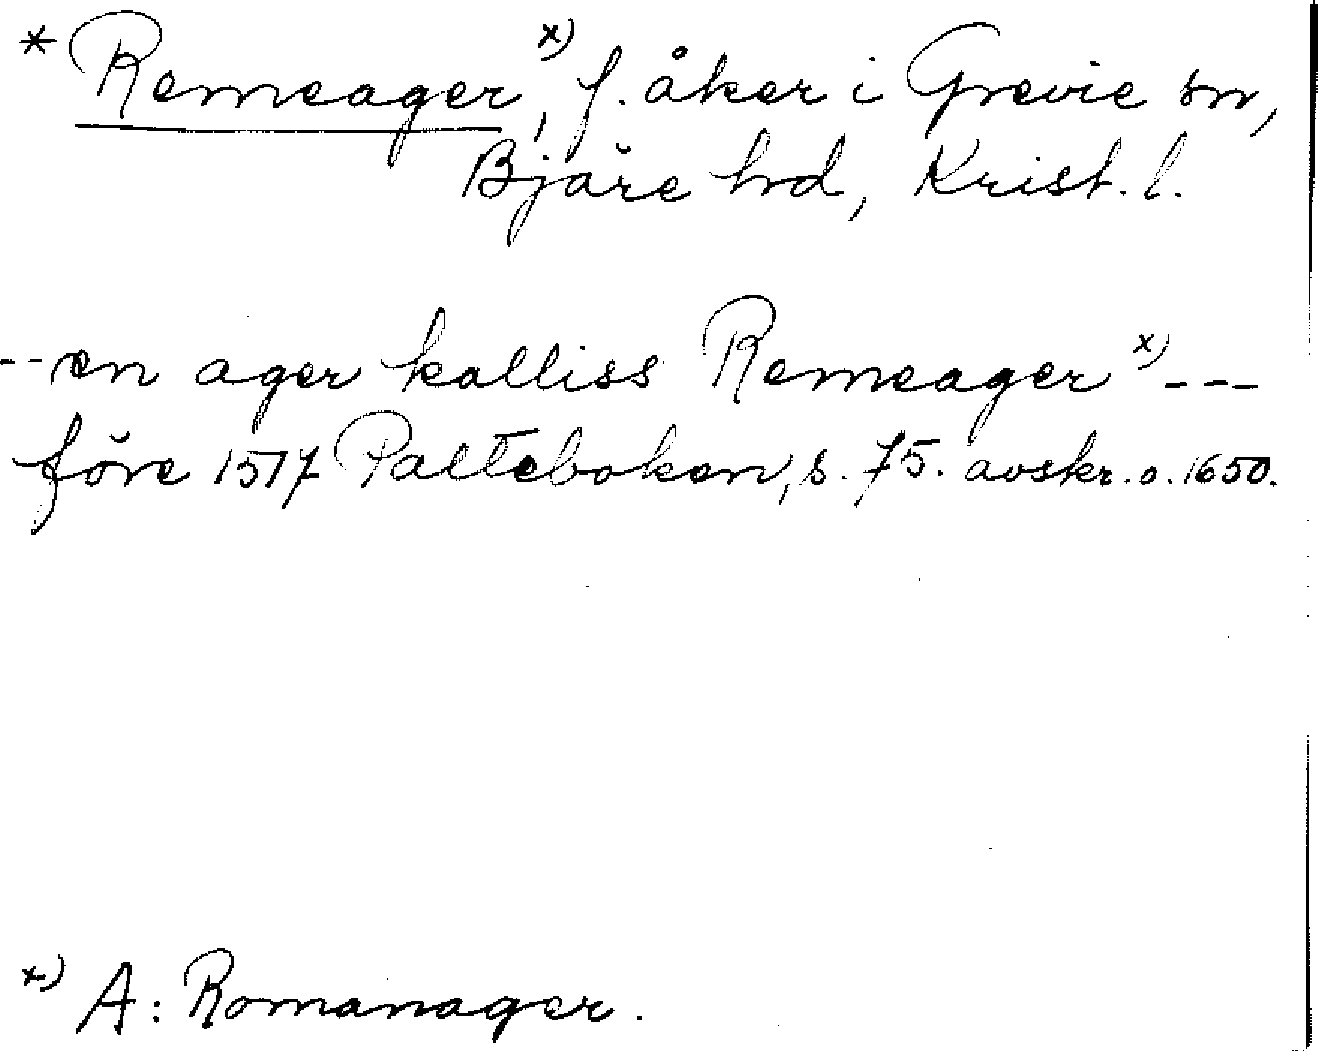 * Remeager x), f. åker i Grevie sn,
Bjäre hd, Krist. l.
-- en ager kalliss Remeager x) ---
före 1517 Palteboken, s. 75. avskr. o. 1650.
x) A: Romanager.